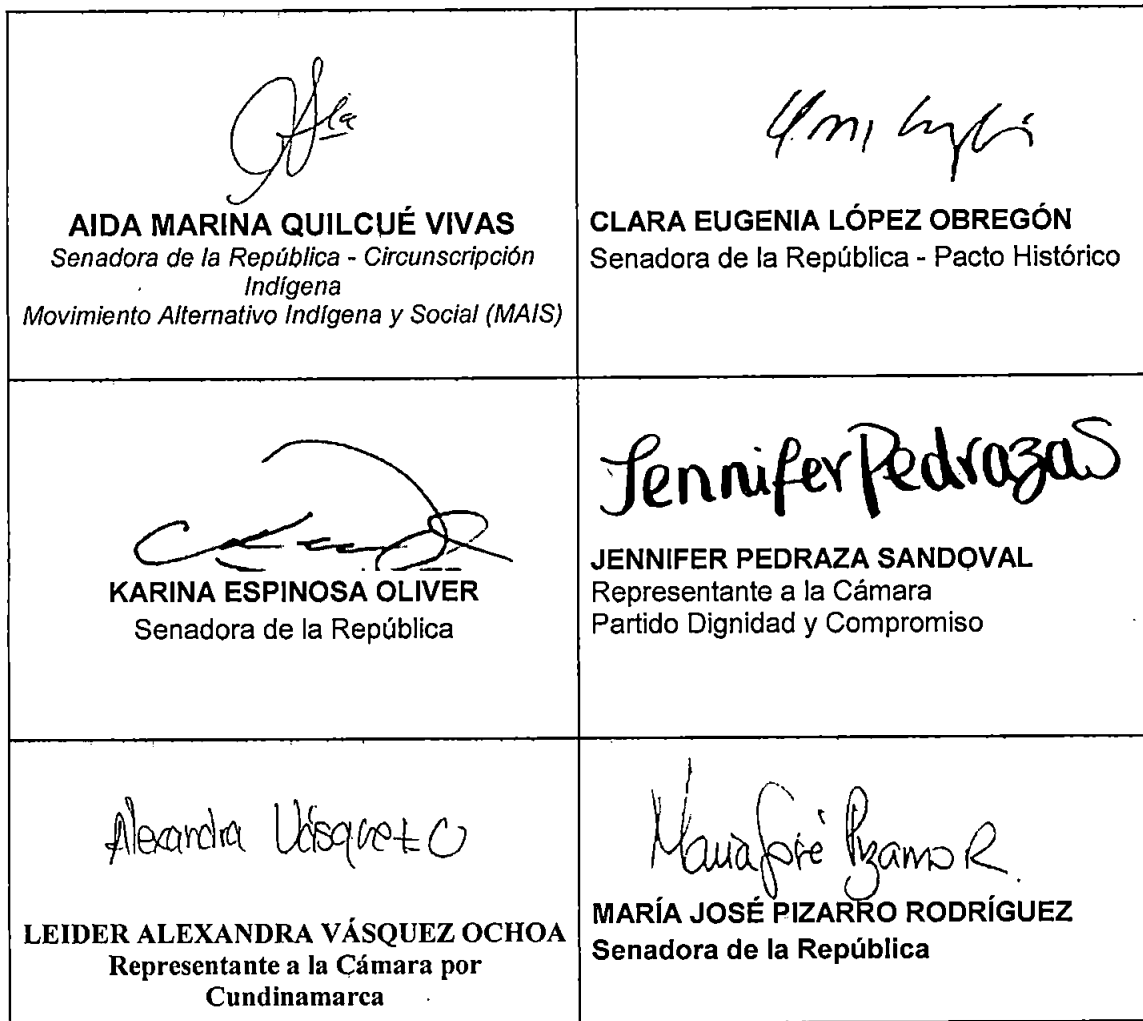 AIDA MARINA QUILCUÉ VIVAS
Senadora de la República - Circunscripción
Indígena
Movimiento Alternativo Indígena y Social (MAIS)
CLARA EUGENIA LÓPEZ OBREGÓN
Senadora de la República - Pacto Histórico
KARINA ESPINOSA OLIVER
Senadora de la República
Jennifer Pedraza S
JENNIFER PEDRAZA SANDOVAL
Representante a la Cámara
Partido Dignidad y Compromiso
Alexandra Vásquez O
LEIDER ALEXANDRA VÁSQUEZ OCHOA
Representante a la Cámara por
Cundinamarca
María José Pizarro R.
MARÍA JOSÉ PIZARRO RODRÍGUEZ
Senadora de la República